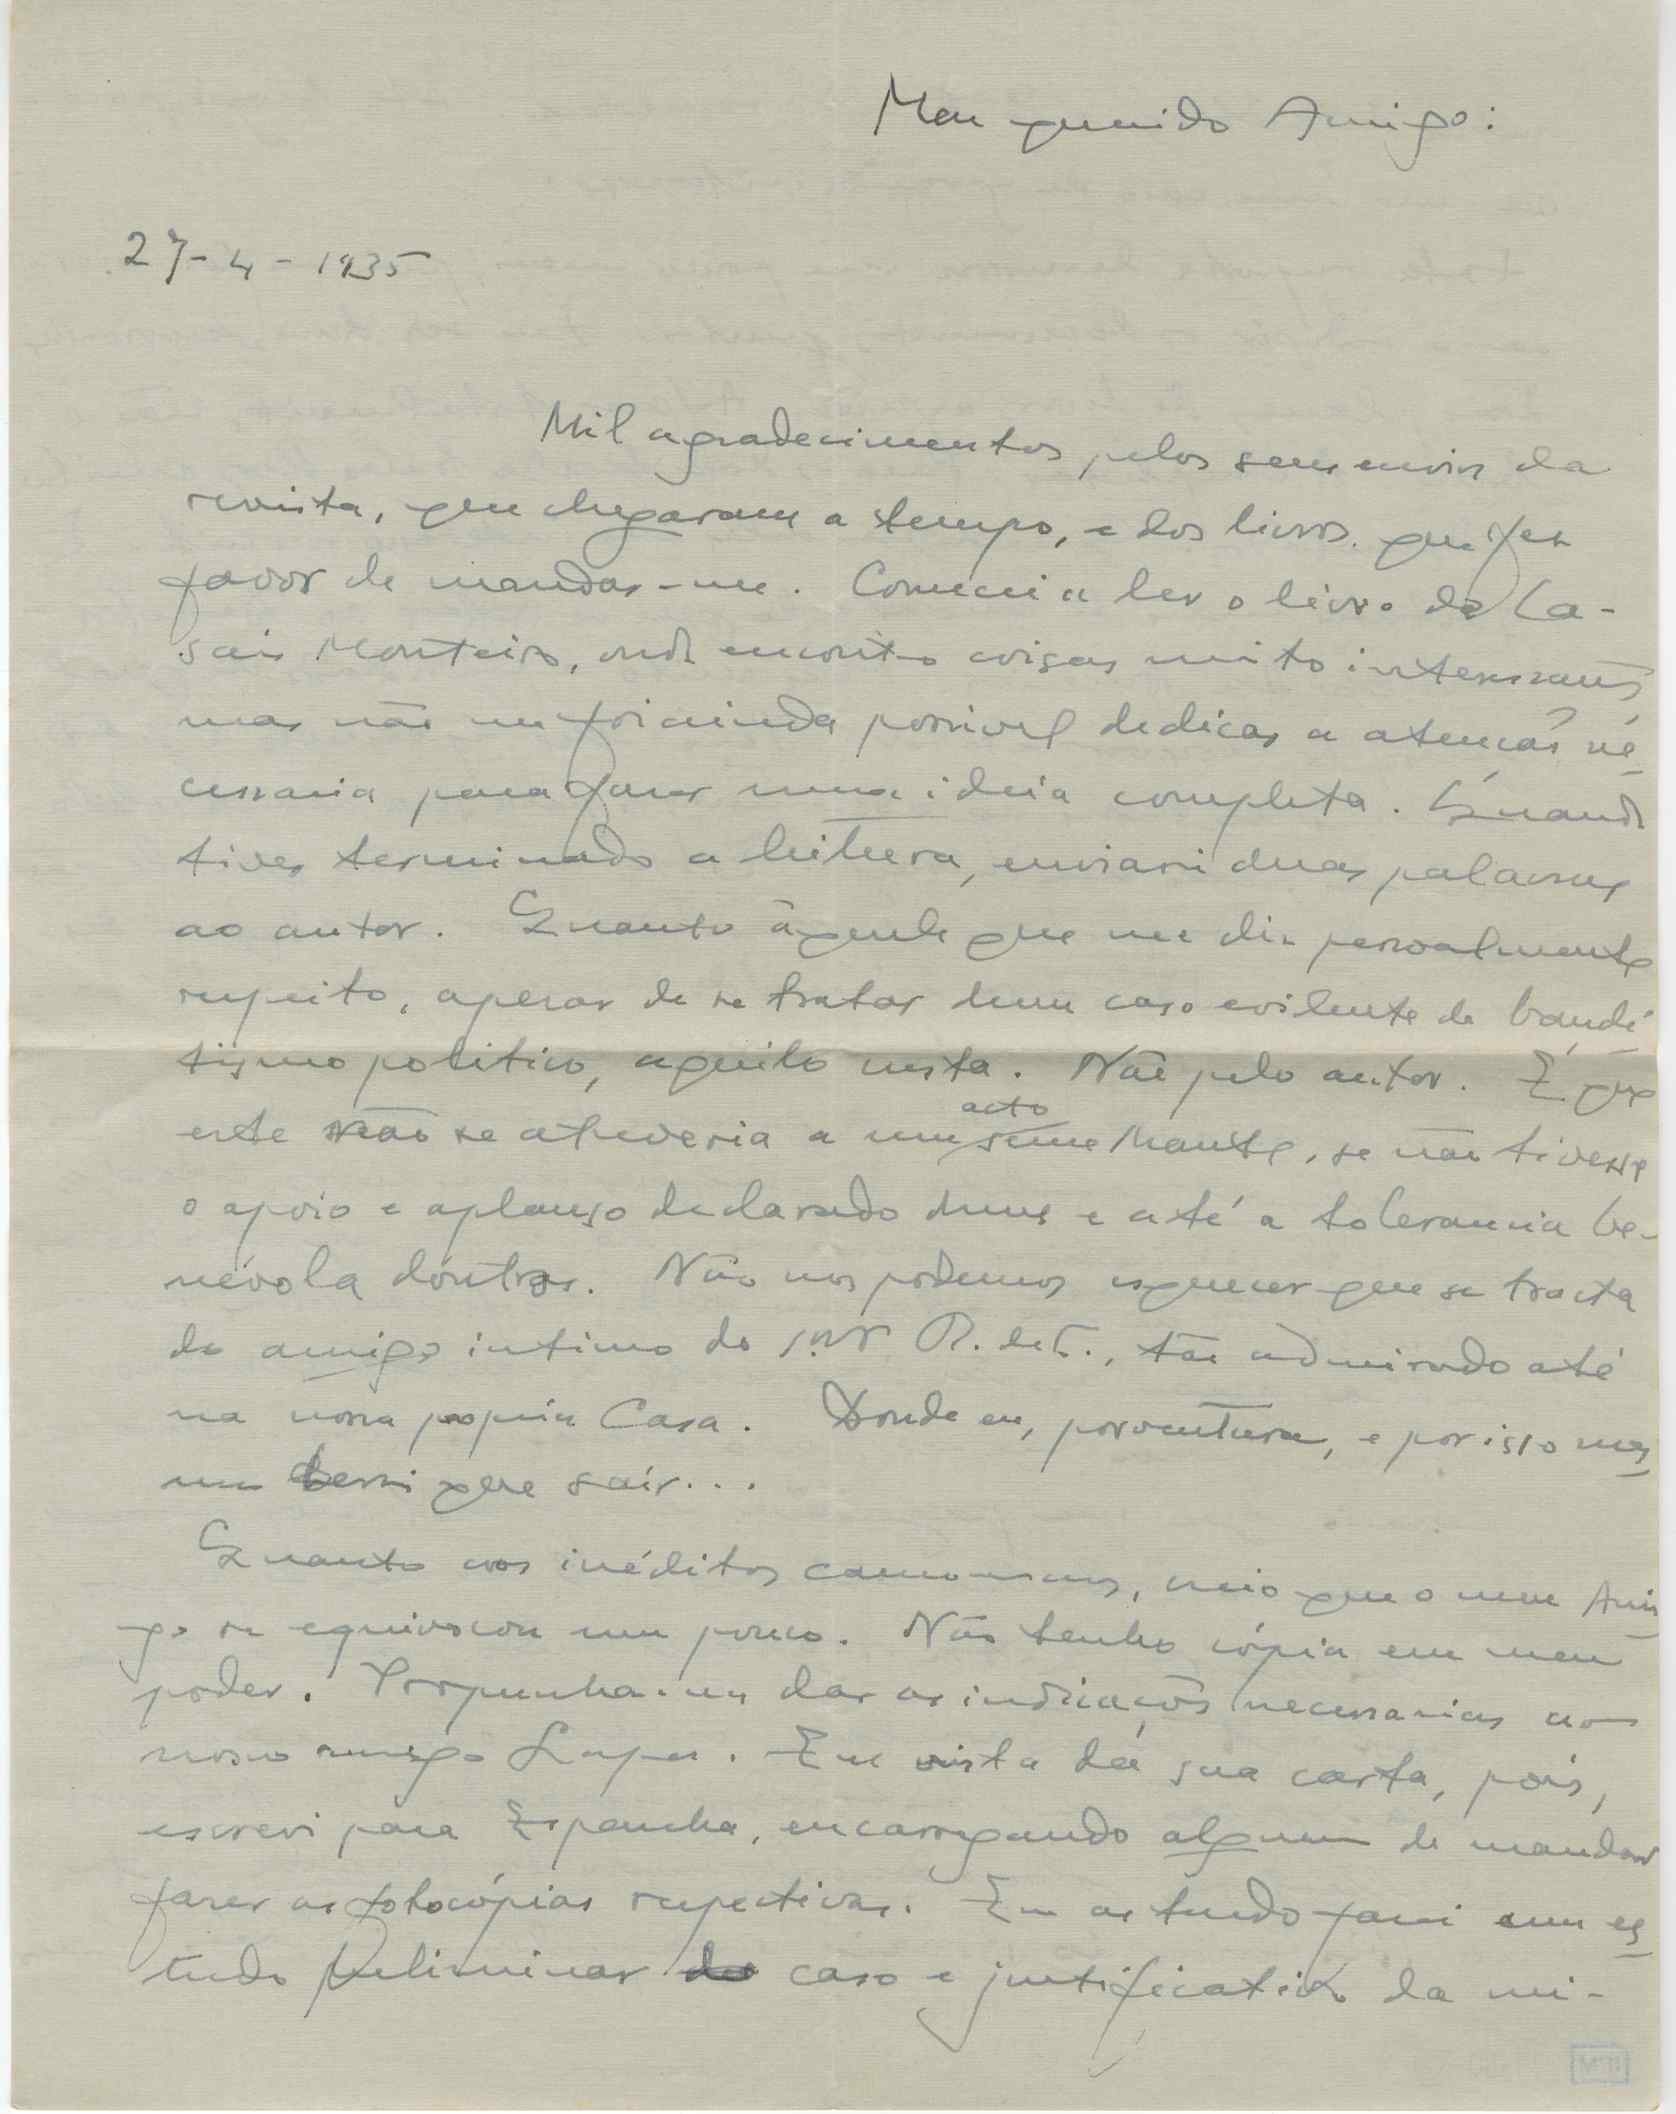 Meu querido Amigo:
27-4-1935
Mil agradecimentos pelos seus envios da
revista, que chegaram a tempo, e dos livros que fez
favor de mandar-me. Comecei a ler o livro de Ca-
sais Monteiro, onde encontro coisas muito interessantes
mas não me foi ainda possivel dedicar a atenção ne
cessaria para fazer uma ideia completa. Quando
tiver terminado a leitura, enviarei duas palavras
ao autor. Quanto à que me diz pessoalmente
respeito, apesar de se tratar dum caso evidente de bandi
tismo politico, aquilo . Não pelo autor. É que
este não se atreveria a um acto semelhante, se não tivesse
o apoio e aplauso declarado duns e até a tolerancia be-
névola doutros. Não nos podemos esquecer que se tracta
do amigo intimo do R. de C., tão admirado até
na nossa propria Casa. Donde eu, porventura, e por isso mes
mo terei que sair...
Quanto aos inéditos camoneanos, creio que o meu Ami
go se equivocou um pouco. Não tenho cópia em meu
poder. Propunha-me dar as indicações necessarias ao
nosso amigo Lapa. Em vista da sua carta, pois,
escrevi para Espanha, encarregando alguem de mandar
fazer as fotocópias respectivas. Em as tendo farei um es
tudo preliminar do caso e justificativo da mi-